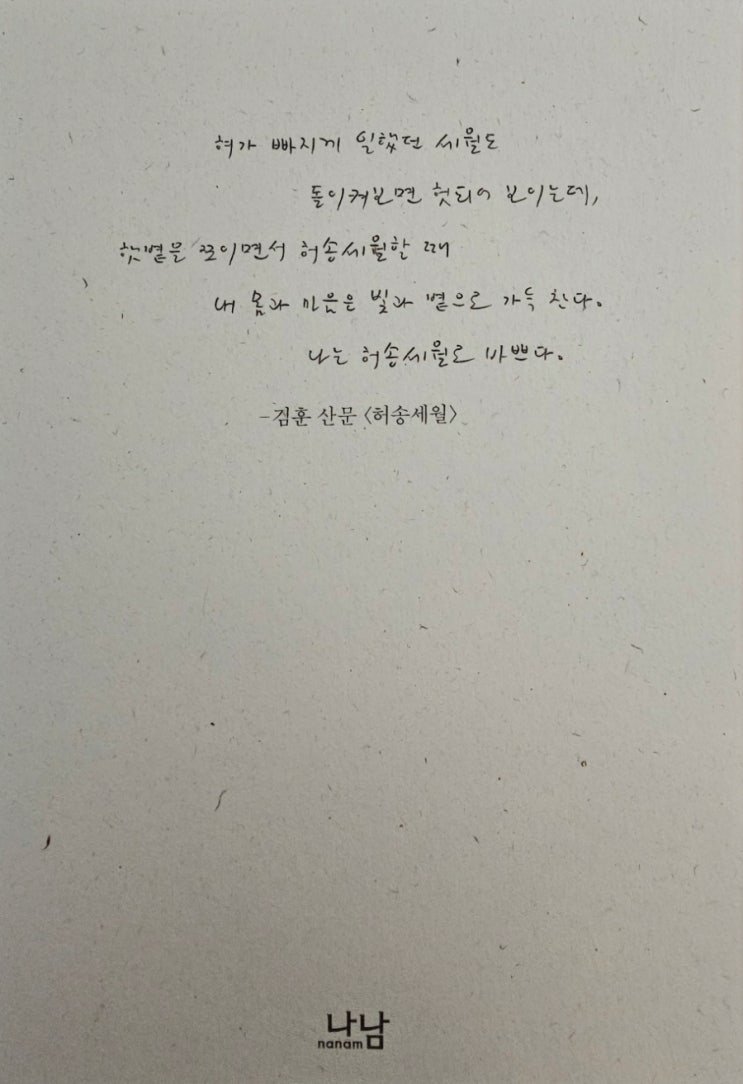 혀가 빠지게 일했던 세월도
돌이켜보면 헛되어 보이는데,
햇볕을 쪼이면서 허송세월할 때
내 몸과 마음은 빛과 볕으로 가득 찬다.
나는 허송세월로 바쁘다.
-김훈 산문 〈허송세월〉
나남
nanam